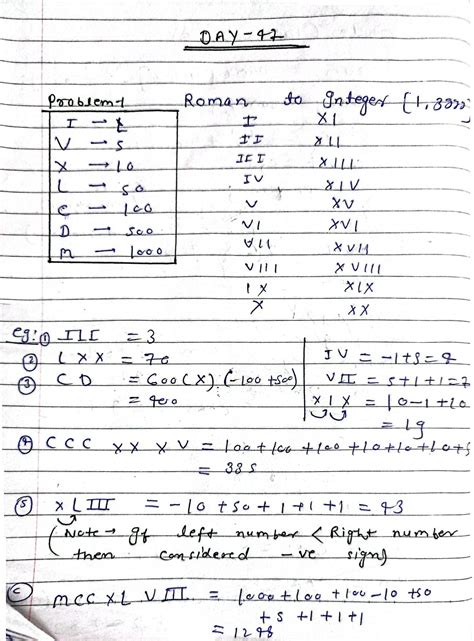 DAY-42
Problem-1 Roman to Integer [1, 3999]
I → 1
V → 5
X → 10
L → 50
C → 100
D → 500
M → 1000
I XI
II XII
III XIII
IV XIV
V XV
VI XVI
VII XVII
VIII XVIII
IX XIX
X XX
eg:① III = 3
② LXX = 70
③ CD = 600(X) (-100+500)
= 400
IV = -1+5=4
VII = 5+1+1=7
XIX = 10-1+10
= 19
④ CCC XX XV = 100+100+100+10+10+10+5
= 335
⑤ XLIII = -10+50+1+1+1 = 43
(Note → If left number < Right number
then considered -ve sign)
MCC XL VIII = 1000+100+100-10+50
+5+1+1+1
= 1248